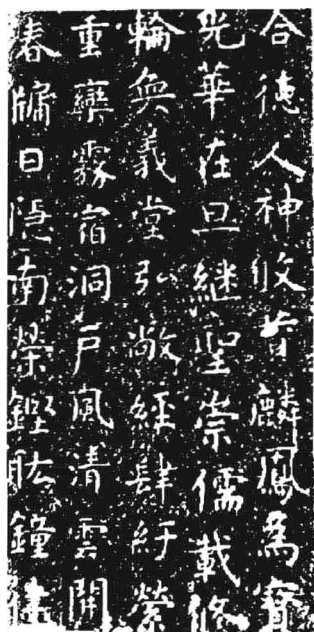 合德人神攸麟鳳爲寶
光華在旦継聖崇儒載脩
輪奐義堂弘敞經肆紆縈
重欒霧宿洞戶風清雲開
春牖日隠南榮鏗耾鐘律